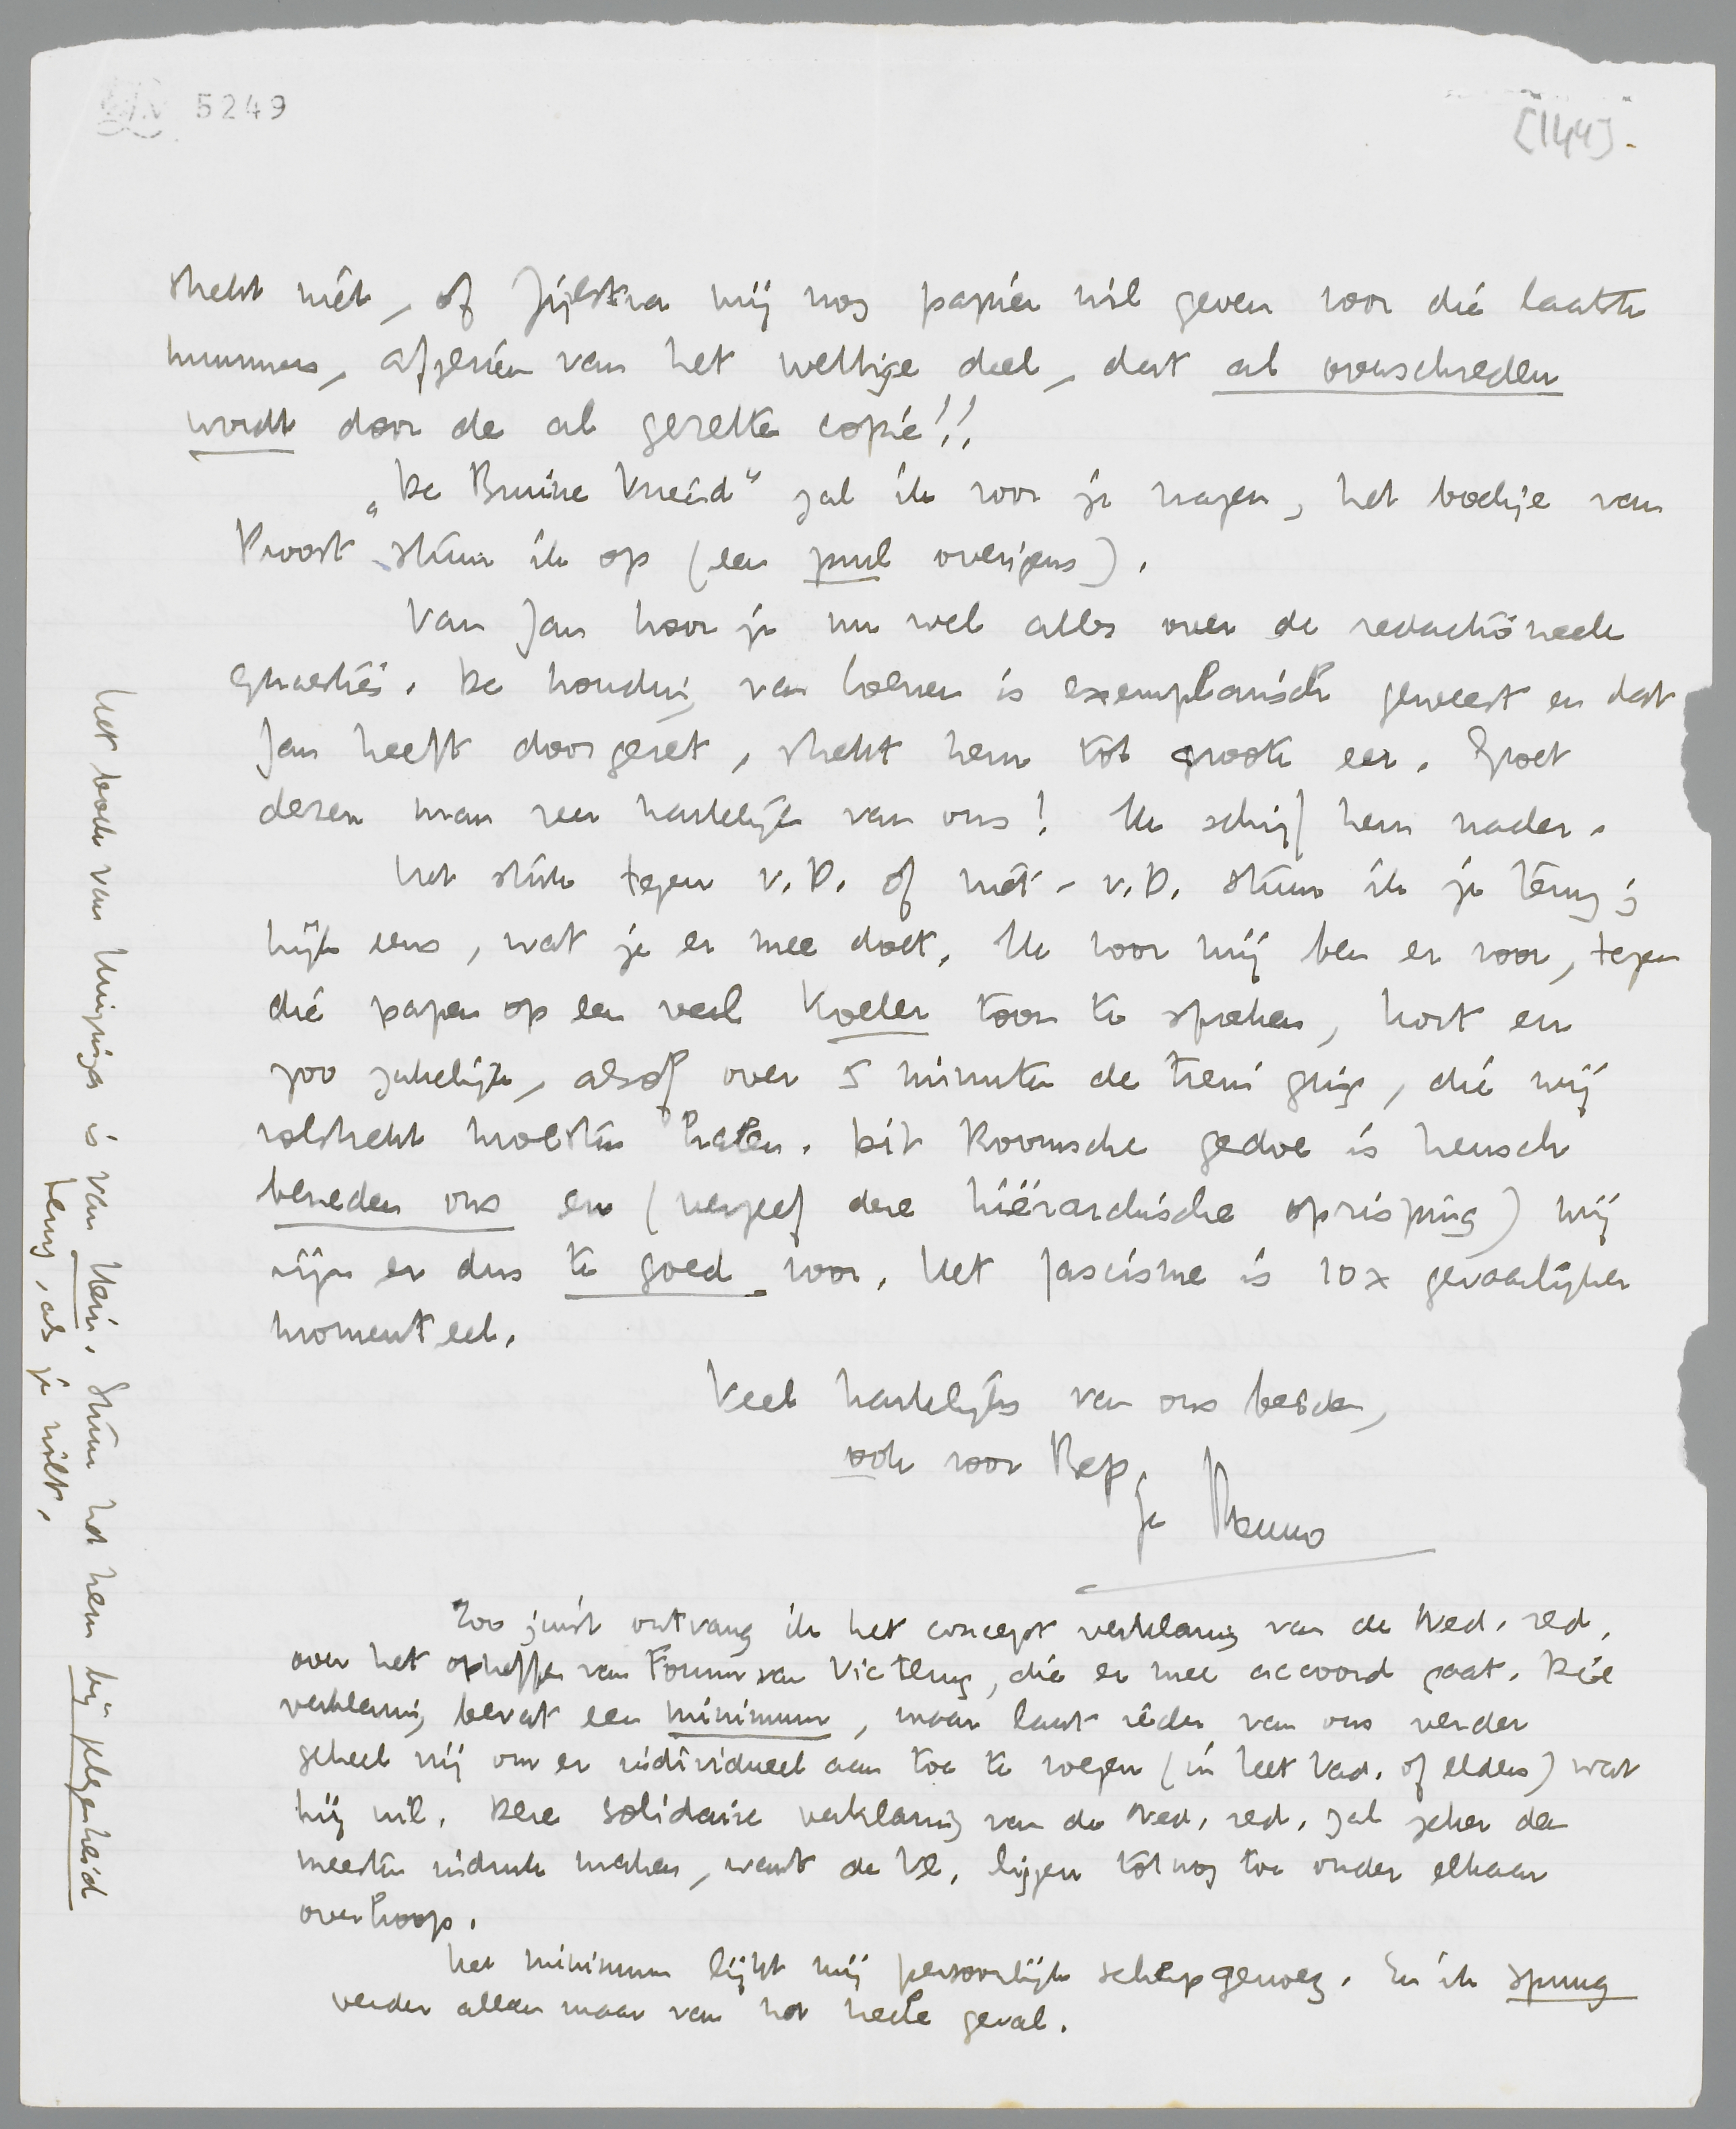 5249
[144].
strekt niet, of Zijlstra mij nog papier wil geven voor die laatste
nummers, afgezien van het wettige deel, dat al overschreden
wordt door de al gezette copie!!
„De Bruine Vriend" zal ik voor je vragen, het boekje van
Proost stuur ik op (een prul overigens).
Van Jan hoor je nu wel alles over de redactioneele
quaesties. De houding van Coenen is exemplarisch geweest en dat
Jan heeft doorgezet, strekt hem tot groote eer. Groet
dezen man zeer hartelijk van ons! Ik schrijf hem nader.
Het stuk tegen v.D. of niet-v.D. stuur ik je terug;
kijk eens, wat je er mee doet. Ik voor mij ben er voor, tegen
die papen op een veel koeler toon te spreken, kort en
zoo zakelijk, alsof over 5 minuten de trein ging, die wij
volstrekt moesten halen. Dit Roomsche gedoe is heusch
beneden ons en (vergeef deze hiërarchische oprisping) wij
zijn er dus te goed voor. Het fascisme is 10x gevaarlijker
momenteel.
Veel hartelijks van ons beiden,
ook voor Bep,
je Menno
Zoo juist ontvang ik het concept verklaring van de Ned. red.
over het opheffen van Forum van Vic terug, die er mee accoord gaat. Die
verklaring bevat een minimum, maar laat ieder van ons verder
geheel vrij om er individueel aan toe te voegen (in Het Vad. of elders) wat
hij wil. Deze solidaire verklaring van de Ned. red. zal zeker den
meesten indruk maken, want de Vl. liggen tot nog toe onder elkaar
overhoop.
Het minimum lijkt mij persoonlijk scherp genoeg. En ik spuug
verder alleen maar van het heele geval.
Het boek van Huizinga is van Hein. Stuur het hem bij gelegenheid
terug, als je wilt.